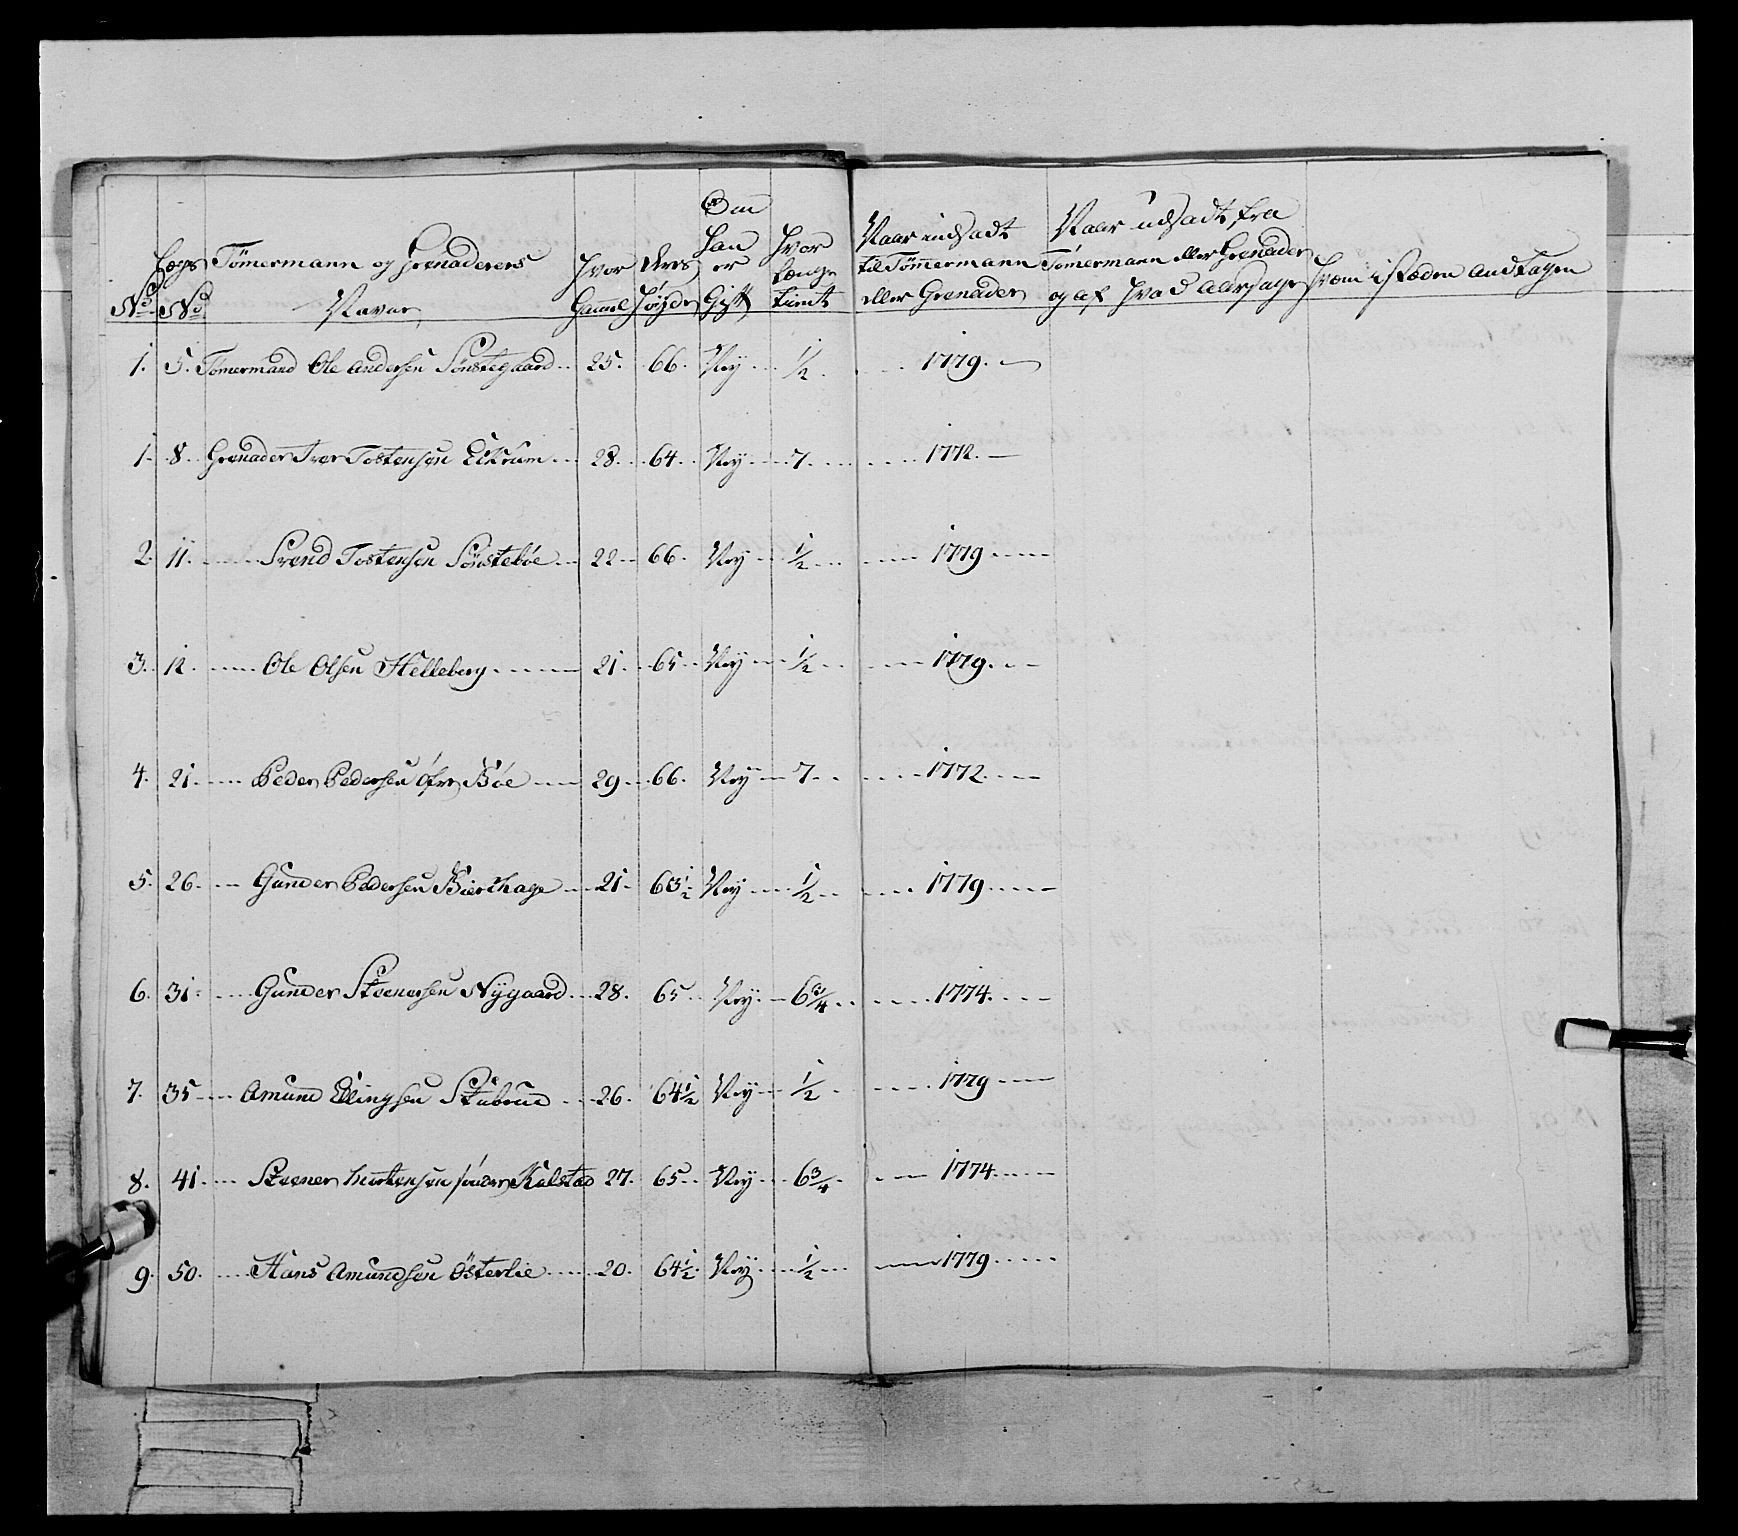 No. Lægs No. Tömermann og Grenaderers Navne Hvor Gamel Deres Höyde Om Han er Gift Hvor Længe tient Naar indsadt til Tömmermann eller Grenader Naar udsadt fra Tömermann eller Grenader og af Hvad Aarsage Hvem i steden andtagen
1. 5. Tömermand Ole Andersen Sönstegaard 25. 66. Ney 1/2 1779.
1. 8. Grenader Iver Tostensen Eikrum 28. 64. Ney 7. 1772.
2. 11. Svend Tostensen Sönsteböe 22 66. Ney 1/2 1779
3. 12. Ole Olsen Helleberg 21. 65. Ney 1/2 1779.
4. 21. Peder Pedersen öfre Böe 29 66. Ney 7 1772.
5. 26. Gunder Pedersen Bierkhage 21. 63 1/2 Ney 1/2 1779.
6. 31. Gunder Steenersen Nygaard 28. 65. Ney. 6 3/4 1774.
7. 35 Amund Ellingsen Stubrud 26. 64 1/2 Ney 1/2 1779
8. 41. Steener Mortensen sönder Kalstad 27. 65. Ney 6 3/4 1774.
9. 50. Hans Amundsen Österlie 20. 64 1/2 Ney 1/2 1779.